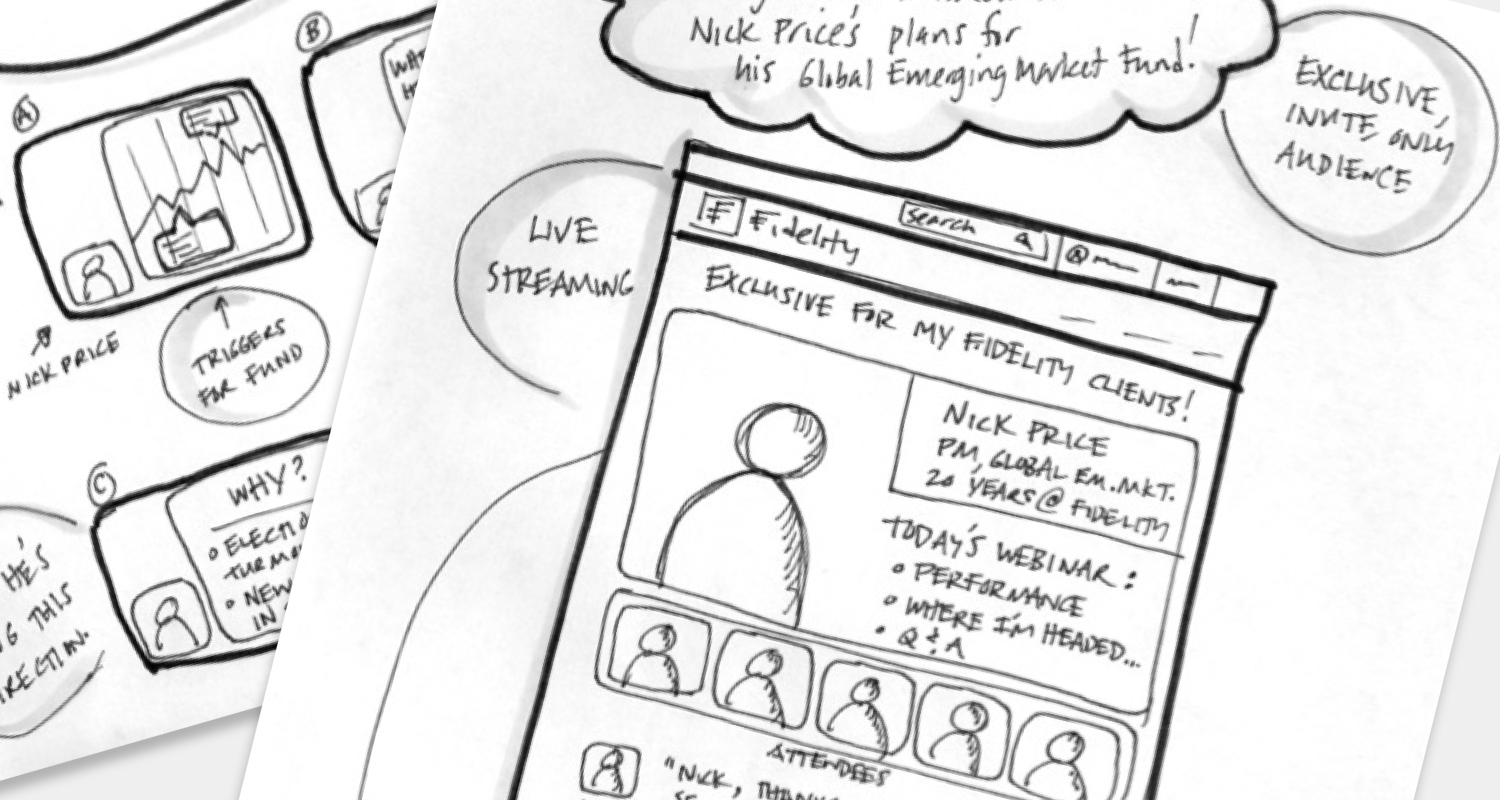 A
B
NICK PRICE
TRIGGERS
FOR FUND
C
WHY?
ELECTIO
TURMO
NEW
IN
HE'S
G THIS
RECTION.
Nick Price's plans for
his Global Emerging Market Fund!
EXCLUSIVE,
INVITE ONLY
AUDIENCE
LIVE
STREAMING
F Fidelity
search
EXCLUSIVE FOR MY FIDELITY CLIENTS!
NICK PRICE
PM, GLOBAL EM. MKT.
20 YEARS @ FIDELITY
TODAY'S WEBINAR:
• PERFORMANCE
• WHERE I'M HEADED...
• Q & A
ATTENDEES
"NICK, THANK